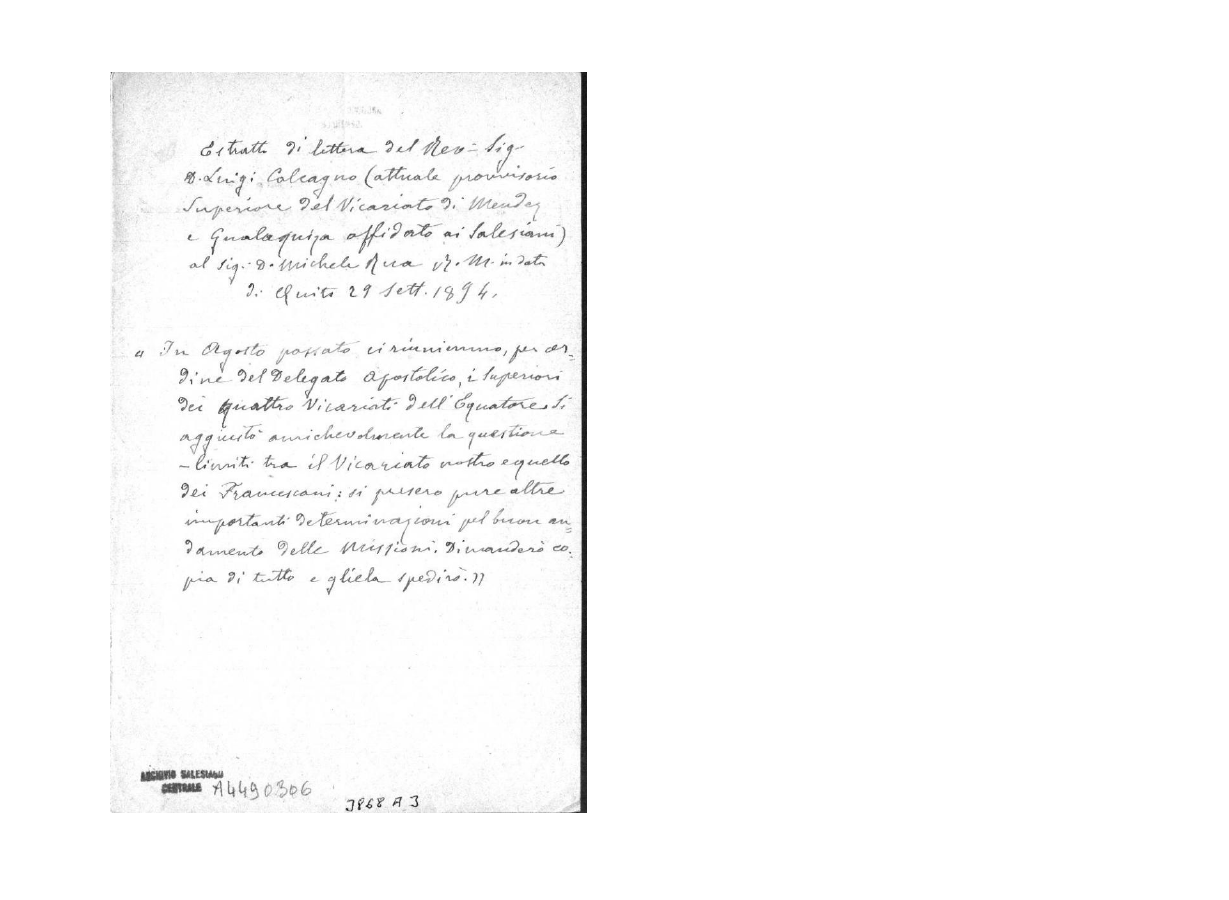 Estratto di lettera del Rev. Sig.
D. Luigi Calcagno (attuale provvisorio
Superiore del Vicariato di Mendez
e Gualaquiza affidato ai Salesiani)
al Sig. D. Michele Rua R. M. in data
di Quito 29 Sett. 1894.
" In Agosto passato ci riunimmo, per or=
dine del Delegato Apostolico, i Superiori
dei quattro Vicariati dell'Equatore. Si
aggiustò amichevolmente la questione
- limiti tra il Vicariato nostro e quello
dei Francescani: si presero pure altre
importanti determinazioni pel buon an=
damento delle Missioni. Dimanderò co=
pia di tutto e gliela spedirò. "
ARCHIVIO SALESIANO
CENTRALE A4490306
3868 A 3